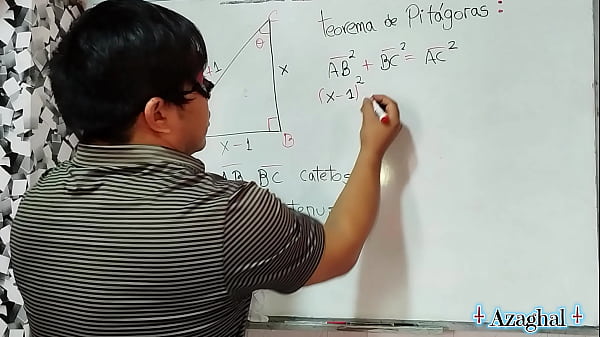 Teorema de Pitágoras :
AB² + BC² = AC²
(x-1)²
C
θ
1
x
B
x-1
AB BC catetos
Azaghal